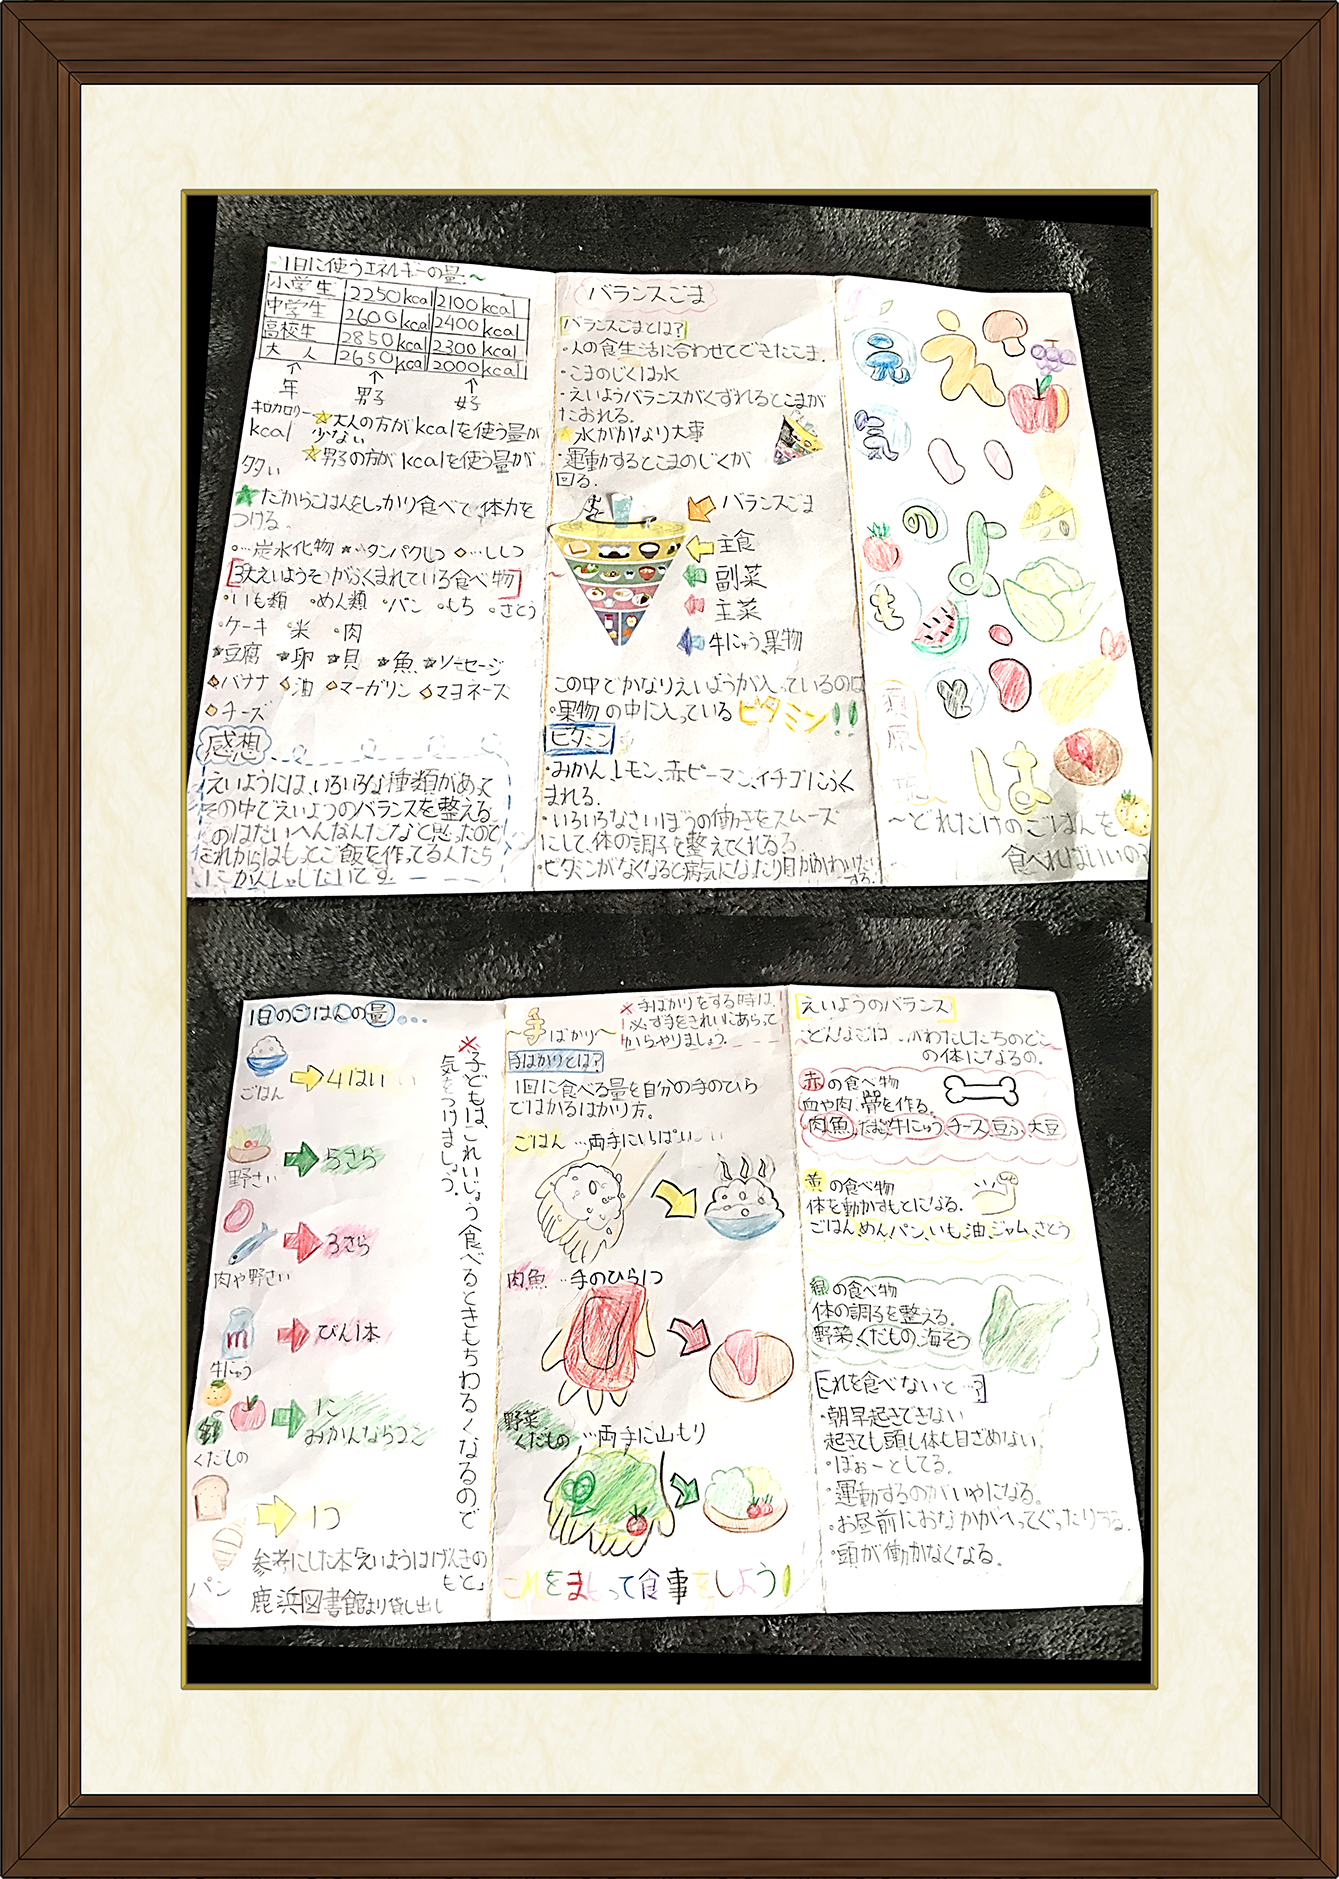 ~1日に使うエネルギーの量~
小学生 2250kcal 2100kcal
中学生 2600kcal 2400kcal
高校生 2850kcal 2300kcal
大人 2650kcal 2000kcal
↑ ↑ ↑
年 男子 女子
キロカロリー
kcal
☆大人の方がkcalを使う量が
少ない
☆男子の方がkcalを使う量が
多い
★だからごはんをしっかり食べて、体力を
つける。
○…炭水化物 ★…タンパクしつ ◇…ししつ
3大えいようそがふくまれている食べ物
○いも類 ○めん類 ○パン ○もち ○さとう
○ケーキ ○米 ○肉
★豆腐 ★卵 ★貝 ★魚 ★ソーセージ
◇バナナ ◇油 ◇マーガリン ◇マヨネーズ
◇チーズ
感想
えいようには、いろいろな種類があって
その中でえいようのバランスを整える
のはたいへんなんだなと思ったので
これからはもっとご飯を作ってる人たち
にかんしゃしたいです。
バランスごま
バランスごまとは?
・人の食生活に合わせてできたこま。
・こまのじくは水
・えいようバランスがくずれるとこまが
たおれる。
☆水がかなり大事
・運動するとこまのじくが
回る。
バランスごま
主食
副菜
主菜
牛にゅう、果物
この中でかなりえいようが入っているのは
・果物の中に入っているビタミン!!
ビタミン
・みかん、レモン、赤ピーマン、イチゴにふく
まれる。
・いろいろなさいぼうの働きをスムーズ
にして、体の調子を整えてくれる。
・ビタミンがなくなると病気になったり目がかわいたり
する。
元気のもと
えいようは
~どれだけのごはんを
食べればいいの?
1日のごはんの量…
ごはん 4はい
野さい 5さら
肉や野さい 3さら
牛にゅう びん1本
くだもの 1こ
みかんなら2こ
パン 1つ
※子どもは、これいじょう食べるときもちわるくなるので
気をつけましょう。
参考にした本「えいようはげんきの
もと」
鹿浜図書館より貸し出し
~手ばかり~
※手ばかりをする時は、
必ず手をきれいにあらって
からやりましょう。
手ばかりとは?
1回に食べる量を自分の手のひら
ではかるはかり方。
ごはん…両手にいっぱい
肉魚…手のひら1つ
野菜
くだもの…両手に山もり
これをまもって食事をしよう!
えいようのバランス
~どんなごは がわたしたちのどこ
の体になるの。
赤の食べ物
血や肉、骨を作る。
肉、魚、たまご、牛にゅう、チーズ、豆ふ、大豆
黄の食べ物
体を動かすもとになる。
ごはん、めん、パン、いも、油、ジャム、さとう
緑の食べ物
体の調子を整える。
野菜、くだもの、海そう
これを食べないと…?
・朝早起きできない
起きても頭も体も目ざめない。
・ぼぉーとしてる。
・運動するのがいやになる。
・お昼前におなかがへってぐったりする。
・頭が働かなくなる。